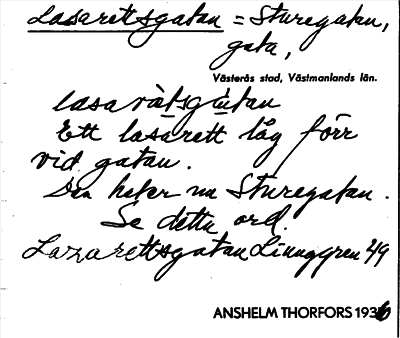 Lasarettsgatan = Sturegatan,
gata,
Västerås stad, Västmanlands län.
lasaràtsgatan
Ett lasarett låg förr
vid gatan.
Den heter nu Sturegatan.
Se detta ord.
Lazarettsgatan Linnggren 49
ANSHELM THORFORS 1936